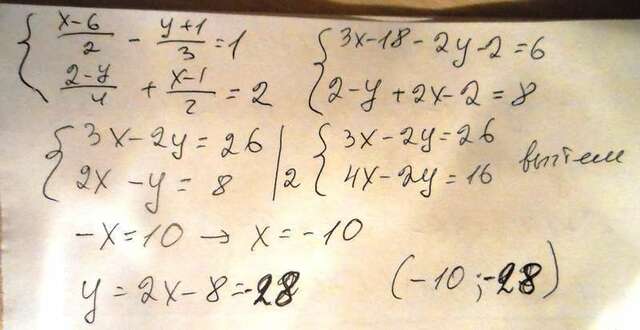 { (x-6)/2 - (y+1)/3 = 1
{ (2-y)/4 + (x-1)/2 = 2
{ 3x-18-2y-2=6
{ 2-y+2x-2=8
{ 3x-2y=26
{ 2x-y=8 |2
{ 3x-2y=26
{ 4x-2y=16
вычтем
-x=10 → x=-10
y=2x-8=-28
(-10;-28)